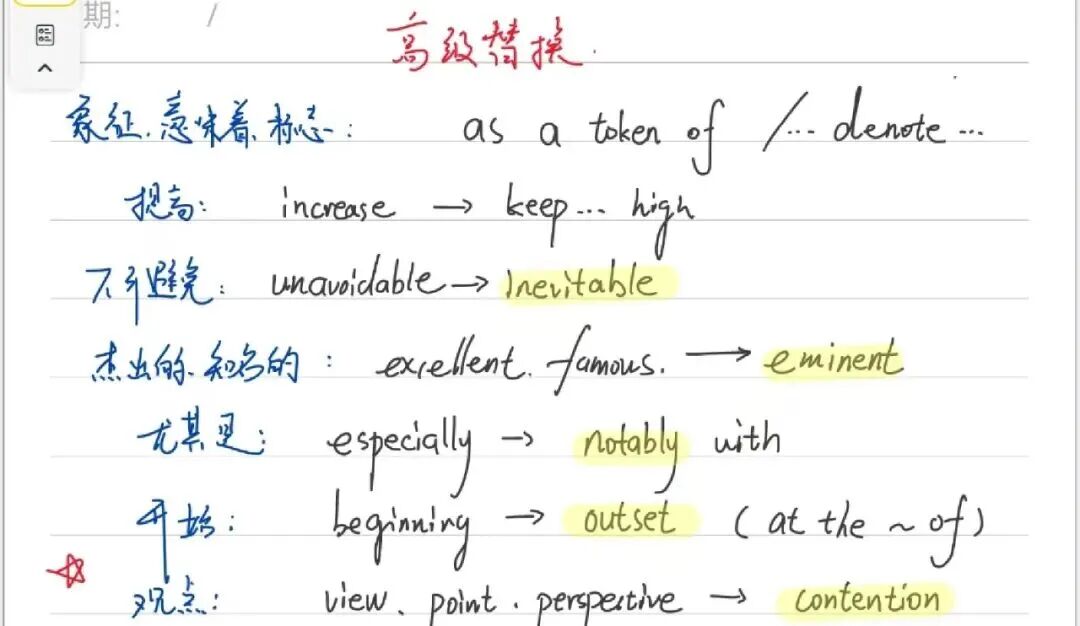 期: /
高级替换.
象征.意味着.标志: as a token of /… denote …
提高: increase → keep… high
不可避免: unavoidable → Inevitable
杰出的.知名的: excellent. famous. → eminent
尤其是: especially → notably with
开始: beginning → outset (at the ~ of)
观点: view、point.perspective → contention